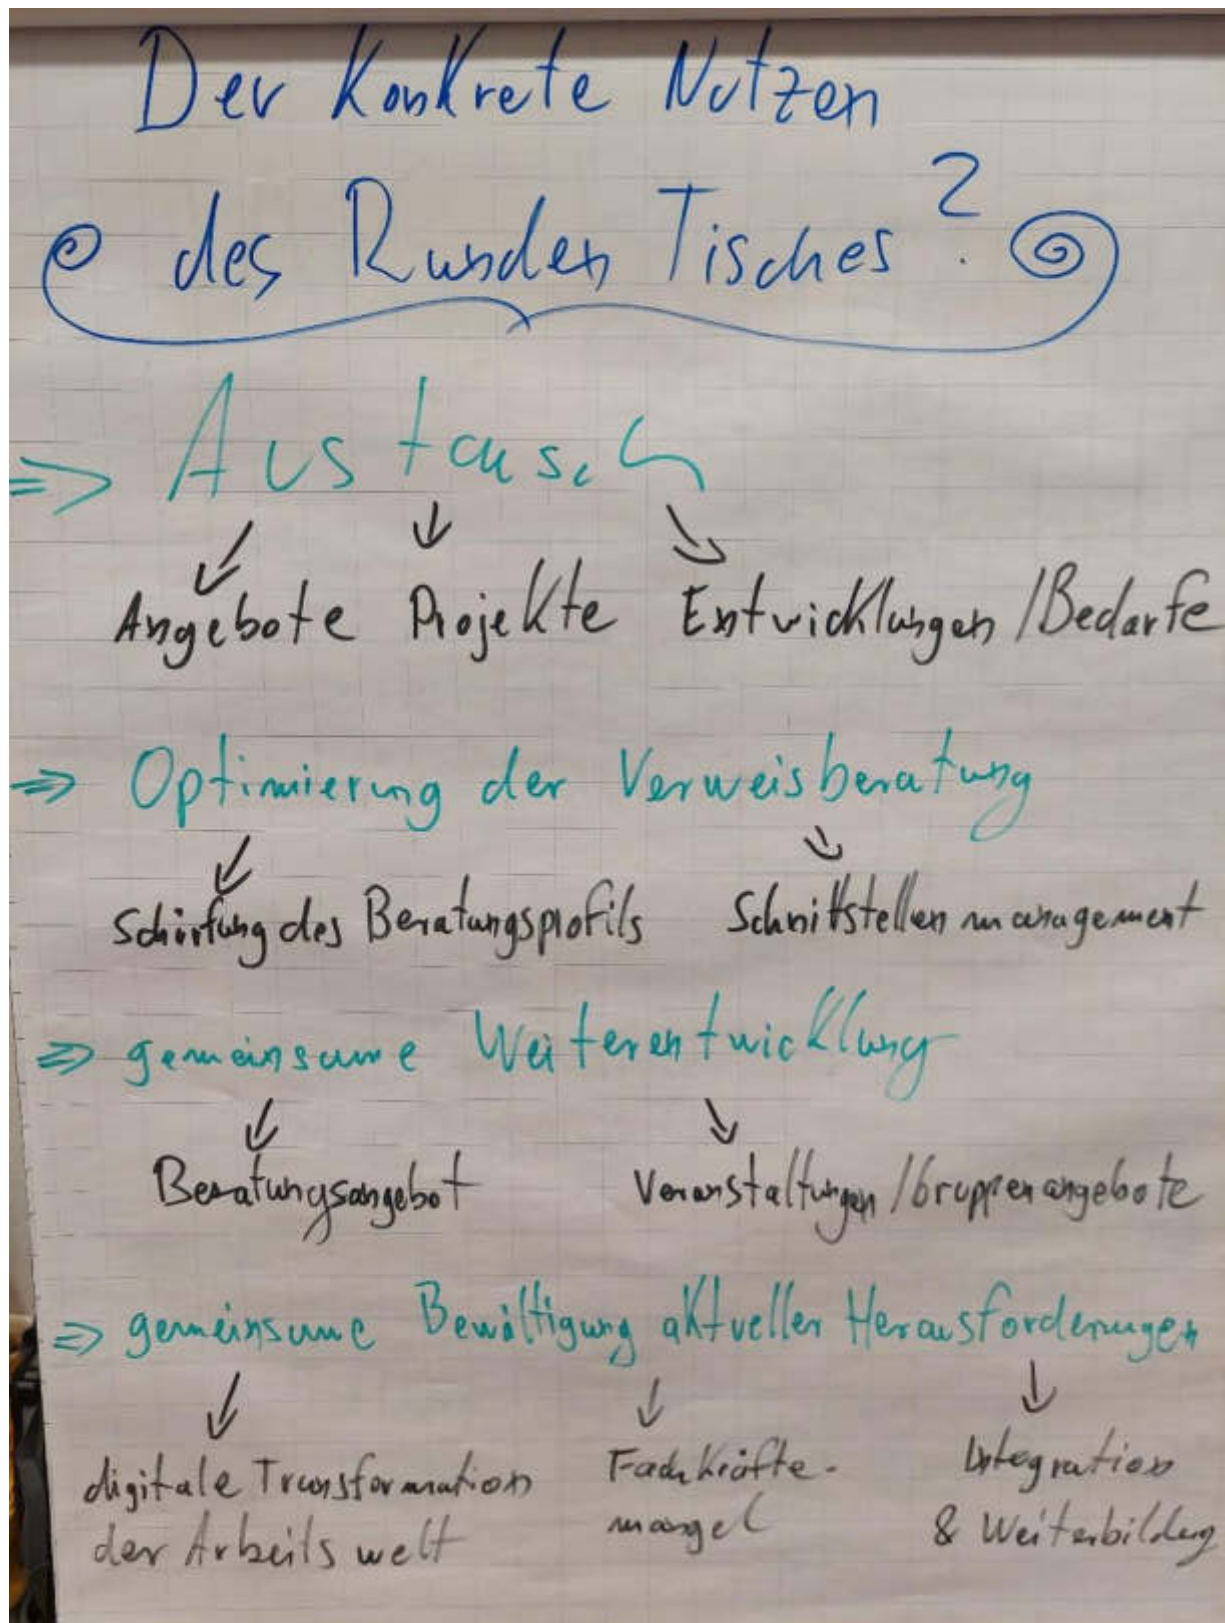 Der Konkrete Nutzen
des Runden Tisches?
⇒ Austausch
Angebote Projekte Entwicklungen/Bedarfe
⇒ Optimierung der Verweisberatung
Schärfung des Beratungsprofils Schnittstellenmanagement
⇒ gemeinsame Weiterentwicklung
Beratungsangebot Veranstaltungen/Gruppenangebote
⇒ gemeinsame Bewältigung aktueller Herausforderungen
digitale Transformation Fachkräfte- Integration
der Arbeitswelt mangel & Weiterbildung